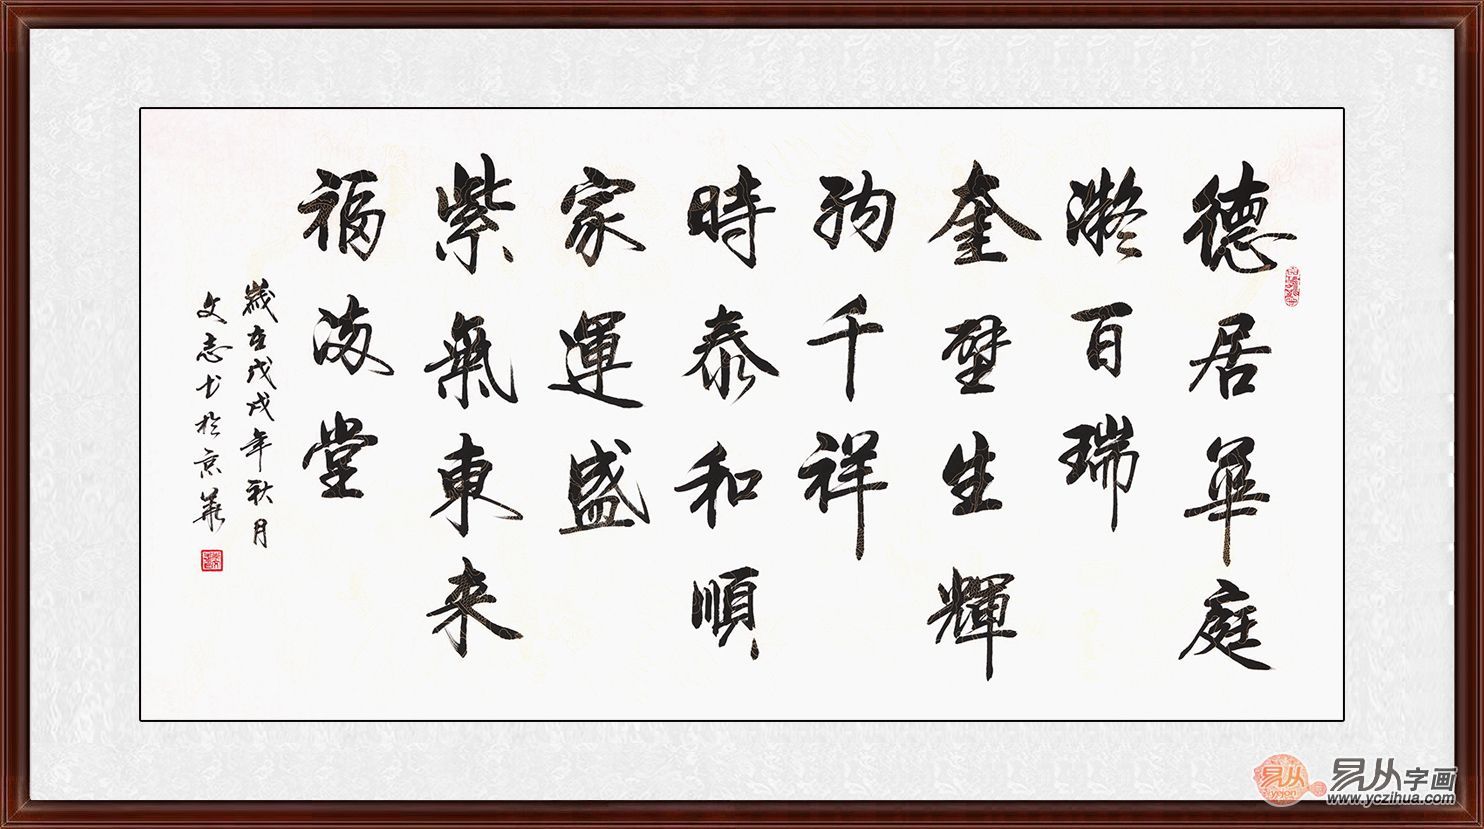 德居華庭
凝百瑞
奎壁生輝
納千祥
時泰和順
家運盛
紫氣東来
福滿堂
歲在戊戌年秋月
文志书於京華
易从
易从字画
www.yczihua.com